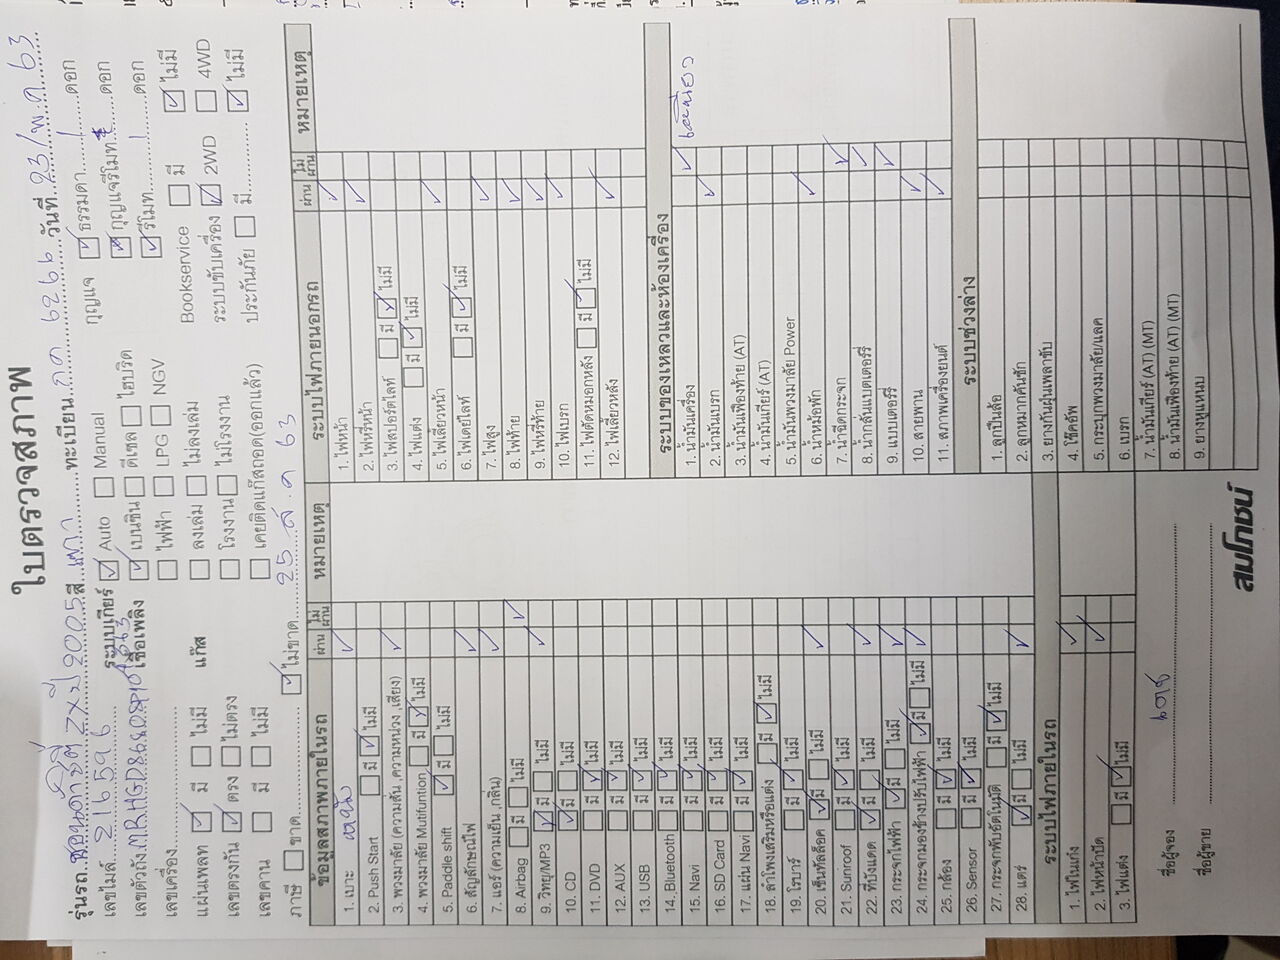 ใบตรวจสภาพ
รุ่นรถ ฮอนด้าซิตี้ ZX ปี 2005 สี เทา ทะเบียน กต 6266 วันที่ 23/พ.ค 63
เลขไมล์ 216596 ระบบเกียร์ Auto Manual กุญแจ ธรรมดา 1 ดอก
เลขตัวถัง เชื้อเพลิง เบนซิน ดีเซล ไฮบริด กุญแจรีโมท ดอก
เลขเครื่อง ไฟฟ้า LPG NGV รีโมท 1 ดอก
แผ่นเพลท มี ไม่มี แก๊ส ลงเล่ม ไม่ลงเล่ม Bookservice มี ไม่มี
เลขตรงกัน ตรง ไม่ตรง โรงงาน ไม่โรงงาน ระบบขับเครื่อง 2WD 4WD
เลขคาน มี ไม่มี เคยติดแก๊สถอด(ออกแล้ว) ประกันภัย มี ไม่มี
ภาษี ขาด ไม่ขาด 25 ส.ค 63
ข้อมูลสภาพภายในรถ ผ่าน ไม่ผ่าน หมายเหตุ
1. เบาะ
2. Push Start มี ไม่มี
3. พวงมาลัย (ความสั่น ,ความหน่วง ,เสียง)
4. พวงมาลัย Mutifuntion มี ไม่มี
5. Paddle shift มี ไม่มี
6. สัญลักษณ์ไฟ
7. แอร์ (ความเย็น ,กลิ่น)
8. Airbag มี ไม่มี
9. วิทยุ/MP3 มี ไม่มี
10. CD มี ไม่มี
11. DVD มี ไม่มี
12. AUX มี ไม่มี
13. USB มี ไม่มี
14. Bluetooth มี ไม่มี
15. Navi มี ไม่มี
16. SD Card มี ไม่มี
17. แผ่น Navi มี ไม่มี
18. ลำโพงเสริมหรือแต่ง มี ไม่มี
19. โรบาร์ มี ไม่มี
20. เซ็นทัลล็อค มี ไม่มี
21. Sunroof มี ไม่มี
22. ที่บังแดด มี ไม่มี
23. กระจกไฟฟ้า มี ไม่มี
24. กระจกมองข้างปรับไฟฟ้า มี ไม่มี
25. กล้อง มี ไม่มี
26. Sensor มี ไม่มี
27. กระจกพับอัตโนมัติ มี ไม่มี
28. แตร์ มี ไม่มี
ระบบไฟภายในรถ
1. ไฟในเก๋ง
2. ไฟหน้าปัด
3. ไฟแต่ง มี ไม่มี
ระบบไฟภายนอกรถ ผ่าน ไม่ผ่าน หมายเหตุ
1. ไฟหน้า
2. ไฟหรี่หน้า
3. ไฟสปอร์ตไลท์ มี ไม่มี
4. ไฟแต่ง มี ไม่มี
5. ไฟเลี้ยวหน้า
6. ไฟเดย์ไลท์ มี ไม่มี
7. ไฟสูง
8. ไฟท้าย
9. ไฟหรี่ท้าย
10. ไฟเบรก
11. ไฟตัดหมอกหลัง มี ไม่มี
12. ไฟเลี้ยวหลัง
ระบบของเหลวและห้องเครื่อง
1. น้ำมันเครื่อง
2. น้ำมันเบรก
3. น้ำมันเฟืองท้าย (AT)
4. น้ำมันเกียร์ (AT)
5. น้ำมันพวงมาลัย Power
6. น้ำหม้อพัก
7. น้ำฉีดกระจก
8. น้ำกลั่นแบตเตอร์รี่
9. แบบเตอร์รี่
10. สายพาน
11. สภาพเครื่องยนต์
ระบบช่วงล่าง
1. ลูกปืนล้อ
2. ลูกหมากคันชัก
3. ยางกันฝุ่นเพลาขับ
4. โช๊คอัพ
5. กระบุกพวงมาลัย/แลค
6. เบรก
7. น้ำมันเกียร์ (AT) (MT)
8. น้ำมันเฟืองท้าย (AT) (MT)
9. ยางแหนบ
ชื่อผู้จอง
ชื่อผู้ขาย
สมโภชน์